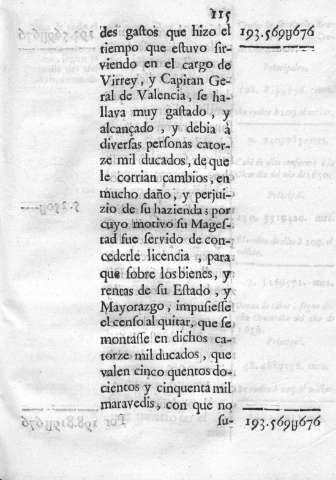 115
des gastos que hizo el 193.569y676
tiempo que estuvo sir-
viendo en el cargo de
Virrey, y Capitan Ge-
ral de Valencia, se ha-
llava muy gastado, y
alcançado, y debia à
diversas personas cator-
ze mil ducados, de que
le corrian cambios, en
mucho daño, y perjui-
zio de su hazienda; por
cuyo motivo su Mages-
tad fue servido de con-
cederle licencia, para
que sobre los bienes, y
rentas de su Estado, y
Mayorazgo, impusiesse
el censo al quitar, que se
montàsse en dichos ca-
torze mil ducados, que
valen cinco quentos do-
cientos y cinquenta mil
maravedis, con que no
su- 193.569y676